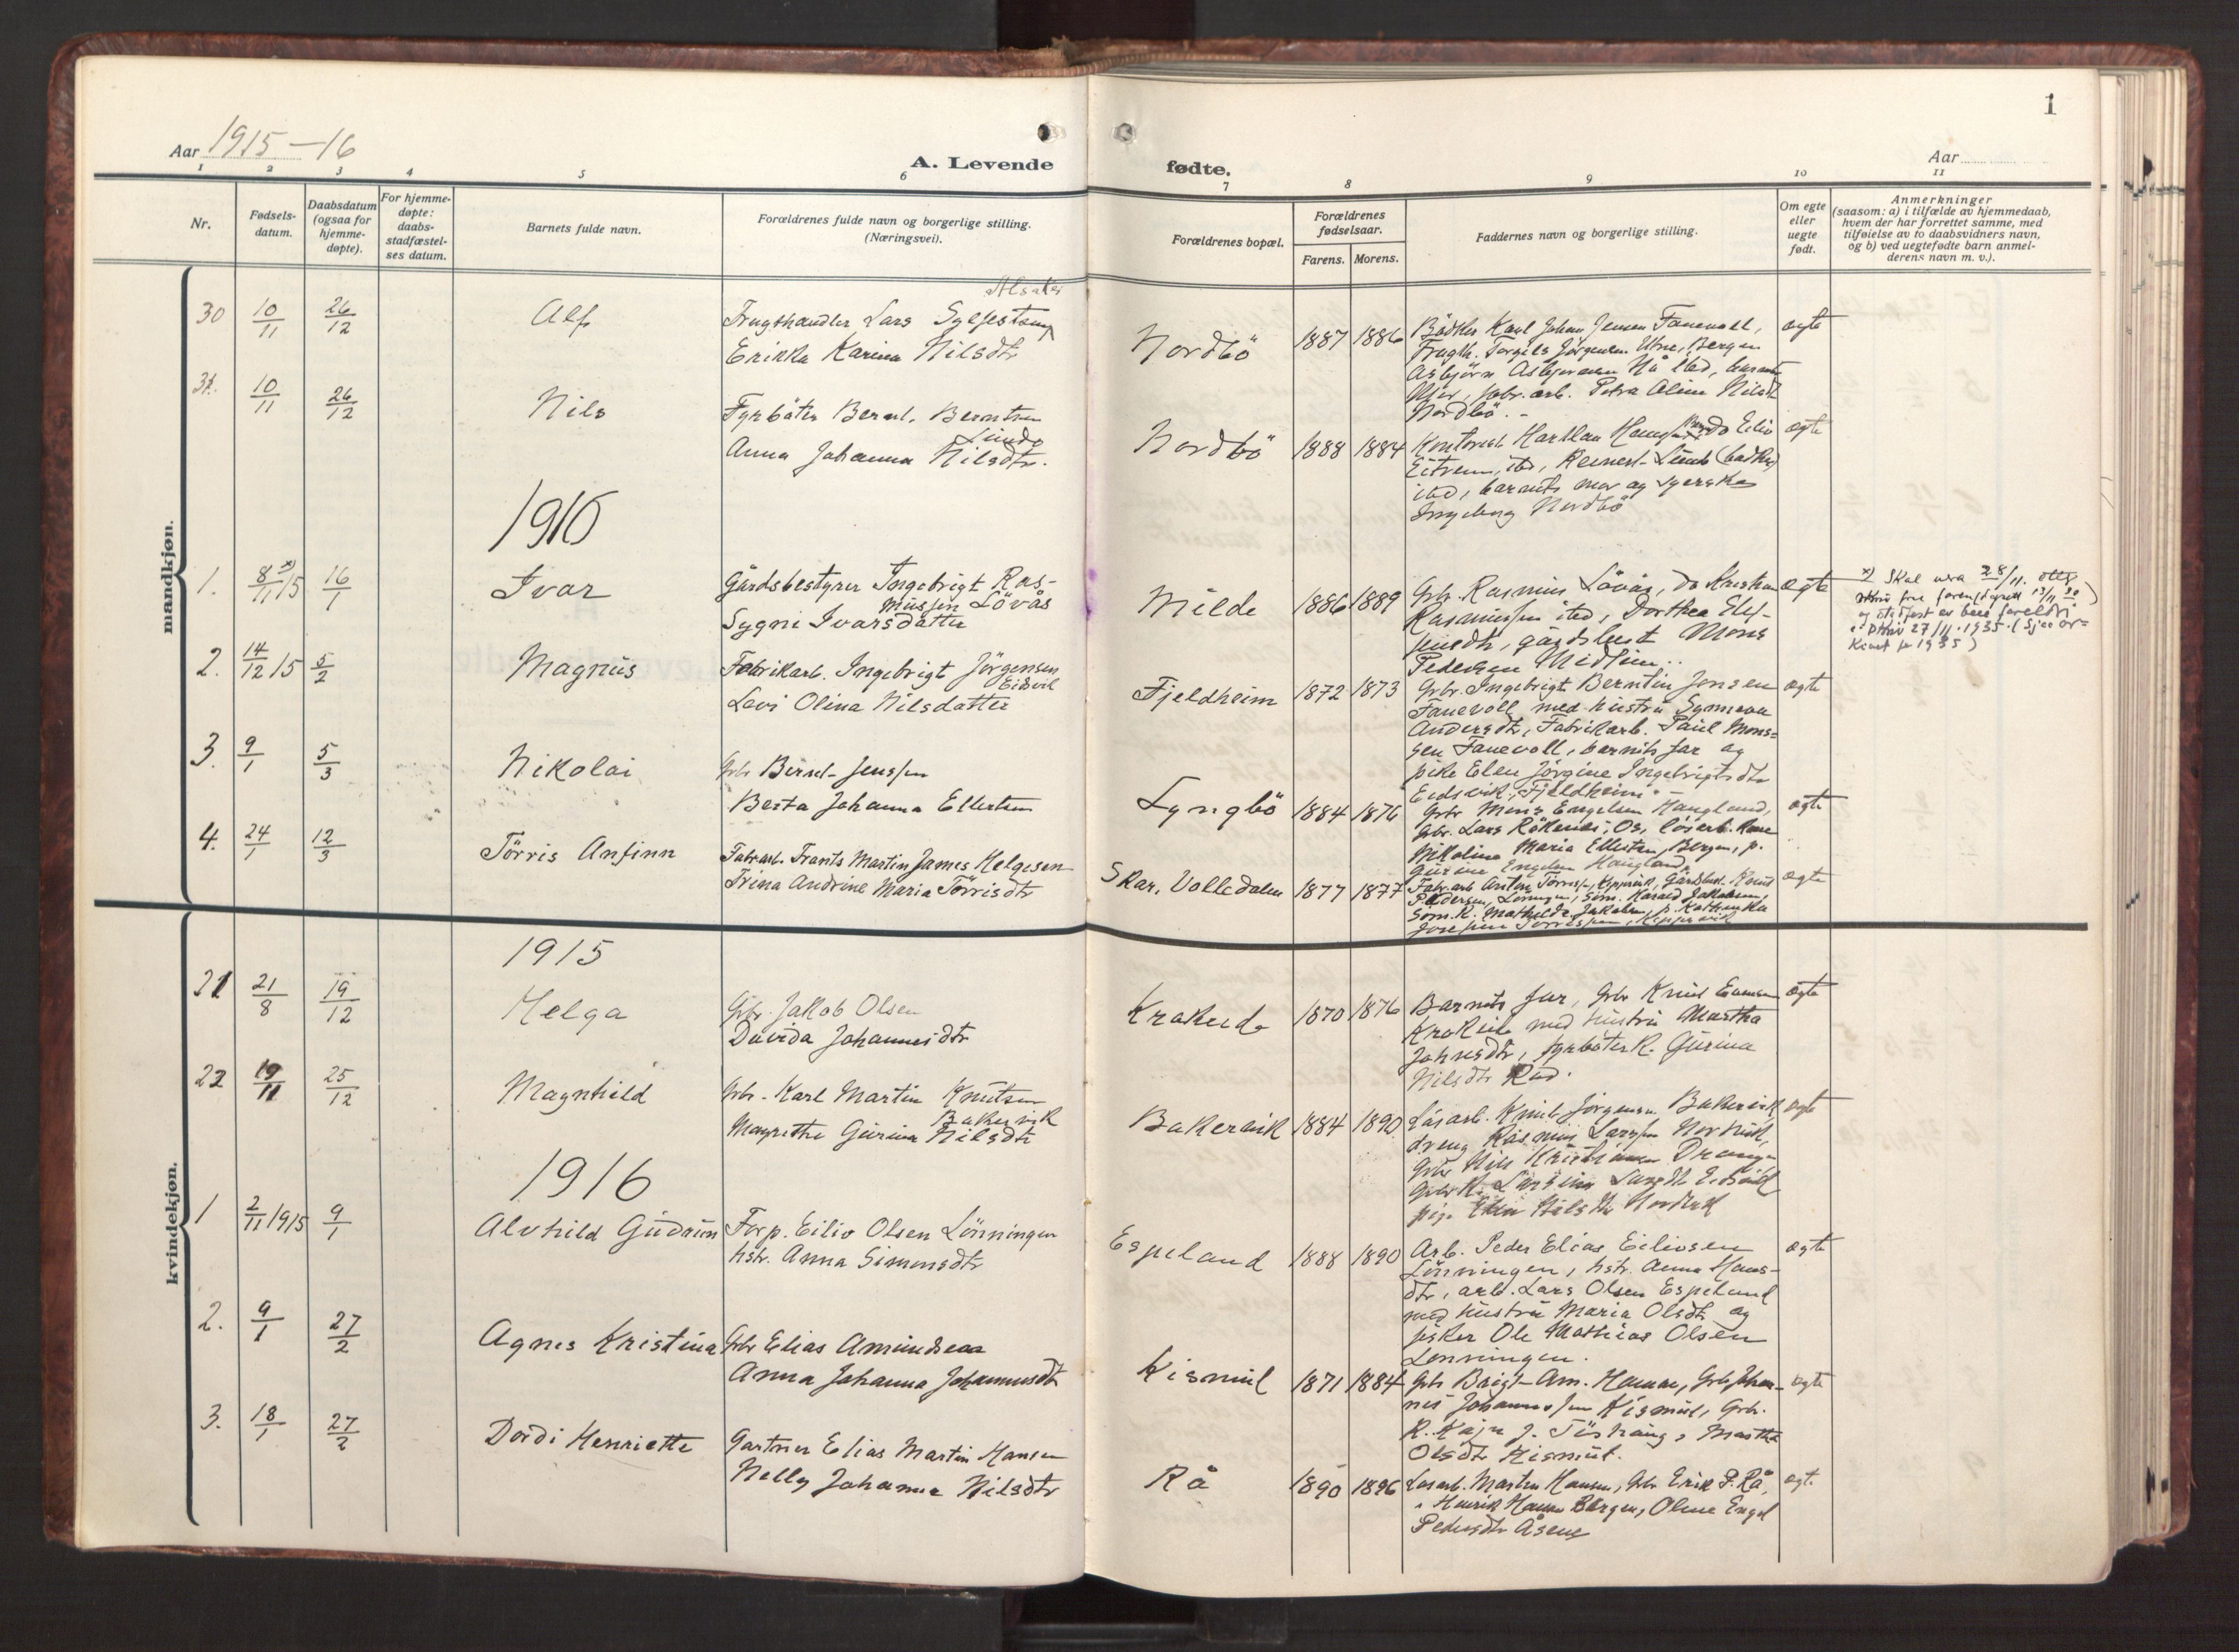 1
Aar 1915-16
A. Levende
fødte.
Aar
1 2 3 4 5 6 7 8 9 10 11
Nr.
Fødsels-
datum.
Daabsdatum
(ogsaa for
hjemme-
døpte).
For hjemme-
døpte:
daabs-
stadfæstel-
ses datum.
Barnets fulde navn.
Forældrenes fulde navn og borgerlige stilling.
(Næringsvei).
Forældrenes bopæl.
Forældrenes
fødselsaar.
Farens. Morens.
Faddernes navn og borgerlige stilling.
Om egte
eller
uegte
født.
Anmerkninger
(saasom: a) i tilfælde av hjemmedaab,
hvem der har forrettet samme, med
tilføielse av to daabsvidners navn,
og b) ved uegtefødte barn anmel-
derens navn m. v.).
mandkjøn.
30 10/11 26/12 Alf
Alsaker
Frugthandler Lars Sylfestsen
Erikka Karina Nilsdtr
Nordbö 1887 1886
Bödker Karl Johan Jensen Fanevoll,
Frugth. Torgils Jörgensen Utne, Bergen
Asbjörn
fabr. arb. Petra Oline Nilsdt
Nordbö.
egte
31. 10/11 26/12 Nils
Fyrböter Bernt. Berntsen
Linde
Anna Johanna Nilsdtr.
Nordbö 1888 1884
Kontorist
Eitrem, ibd,
ibd, barnets mor og syerske
Ingeborg Nordbö
egte
1916
1. 8/11 x) 15 16/1 Ivar
Gårdsbestyrer Ingebrigt Ras-
mussen Lövås
Sygni Ivarsdatter
Milde 1886 1889
Grb. Rasmus Lövås, do Kristian
Rasmussen ibd, Dorthea Elef-
sensdtr, gårdsbest Mons
Pedersen Midtun..
egte
x) Skal vera 28/11.
13/11
og stadfest av foreldri
27/11. 1935.
1935)
2. 14/12 15 5/2 Magnus
Fabrikarb. Ingebrigt Jörgensen
Eidsvik
Lovi Olina Nilsdatter
Fjeldheim 1872 1873
Grbr. Ingebrigt Berntin Jensen
Fanevoll med hustru Synneva
Andersdtr, Fabrikarb. Paul Mons=
sen Fanevoll, barnets far og
pike Elen Jörgine Ingebrigtsdtr
Eidsvik, Fjeldheim.
egte
3. 9/1 5/3 Nikolai
Grb. Bernt Jenssen
Berta Johanna Ellertsen
Lyngbö 1884 1876
Grbr Mons Engelsen Haugland,
Grbr. Lars Rökenes, Os, lösarb. Kone
Nikolina Maria Ellertsen, Bergen, p.
Gurine Engelsen Haugland.
egte
4. 24/1 12/3 Törris Anfinn
Fabrarb. Frants Martin James Helgesen
Trina Andrine Maria Törrisdtr
Skar, Volledalen 1877 1877
Fabr. arb Anton Törressen, Knut
Pedersen, Harald Jakobsen,
Söm. K. Mathilde Jakobsen, p. Kathinka
Josefine Törressen,
egte
kvindekjøn.
1915
21 21/8 19/12 Helga
Grb. Jakob Olsen
Davida Johannesdtr
Krakeide 1870 1876
Barnets far, Grbr Knut
Krokeide med hustru Martha
Johnsdtr, fyrböterk. Gurina
Nilsdtr Röd.
egte
22 19/11 25/12 Magnhild
Grbr. Karl Martin Knutsen
Bakervik
Margrethe Gurina Nilsdtr
Bakervik 1884 1890
Lösarb. Knut Jörgensen Bakervik
dreng Rasmus Larssen Nordvik,
Grbr Nils Kristiansen Drange
Grbr K. Larsine Larsdt Eidsvik
pige Elen Nilsdtr Nordvik
egte
1916
1 2/11 1915 9/1 Alvhild Gudrun
Forp. Eiliv Olsen Lönningen
hstr. Anna Simonsdtr
Espeland 1888 1890
Arb. Peder Elias Eilivsen
Lönningen, hstr. Anna Hans-
dtr, arb. Lars Olsen Espeland
med hustru Maria Olsdtr og
fisker Ole Mathias Olsen
Lønningen.
egte
2. 9/1 27/2 Agnes Kristina
Grbr Elias Amundsen
Anna Johanna Johannesdtr
Kismul 1871 1884
Grbr Brigt Am. Hamre, Grb Johan-
nes Johannessen Kismul, Grb.
K. Kaja J. Töshaug, Martha
Olsdtr Kismul.
egte
3. 18/1 27/2 Dordi Henriette
Gartner Elias Martin Hansen
Nelly Johanna Nilsdtr
Rå 1890 1896
Lösarb. Martin Hansen, Grbr Erik P. Rå,
" Henrik Hansen Bergen, Oline Engel
Pedersdtr Åsen
egte